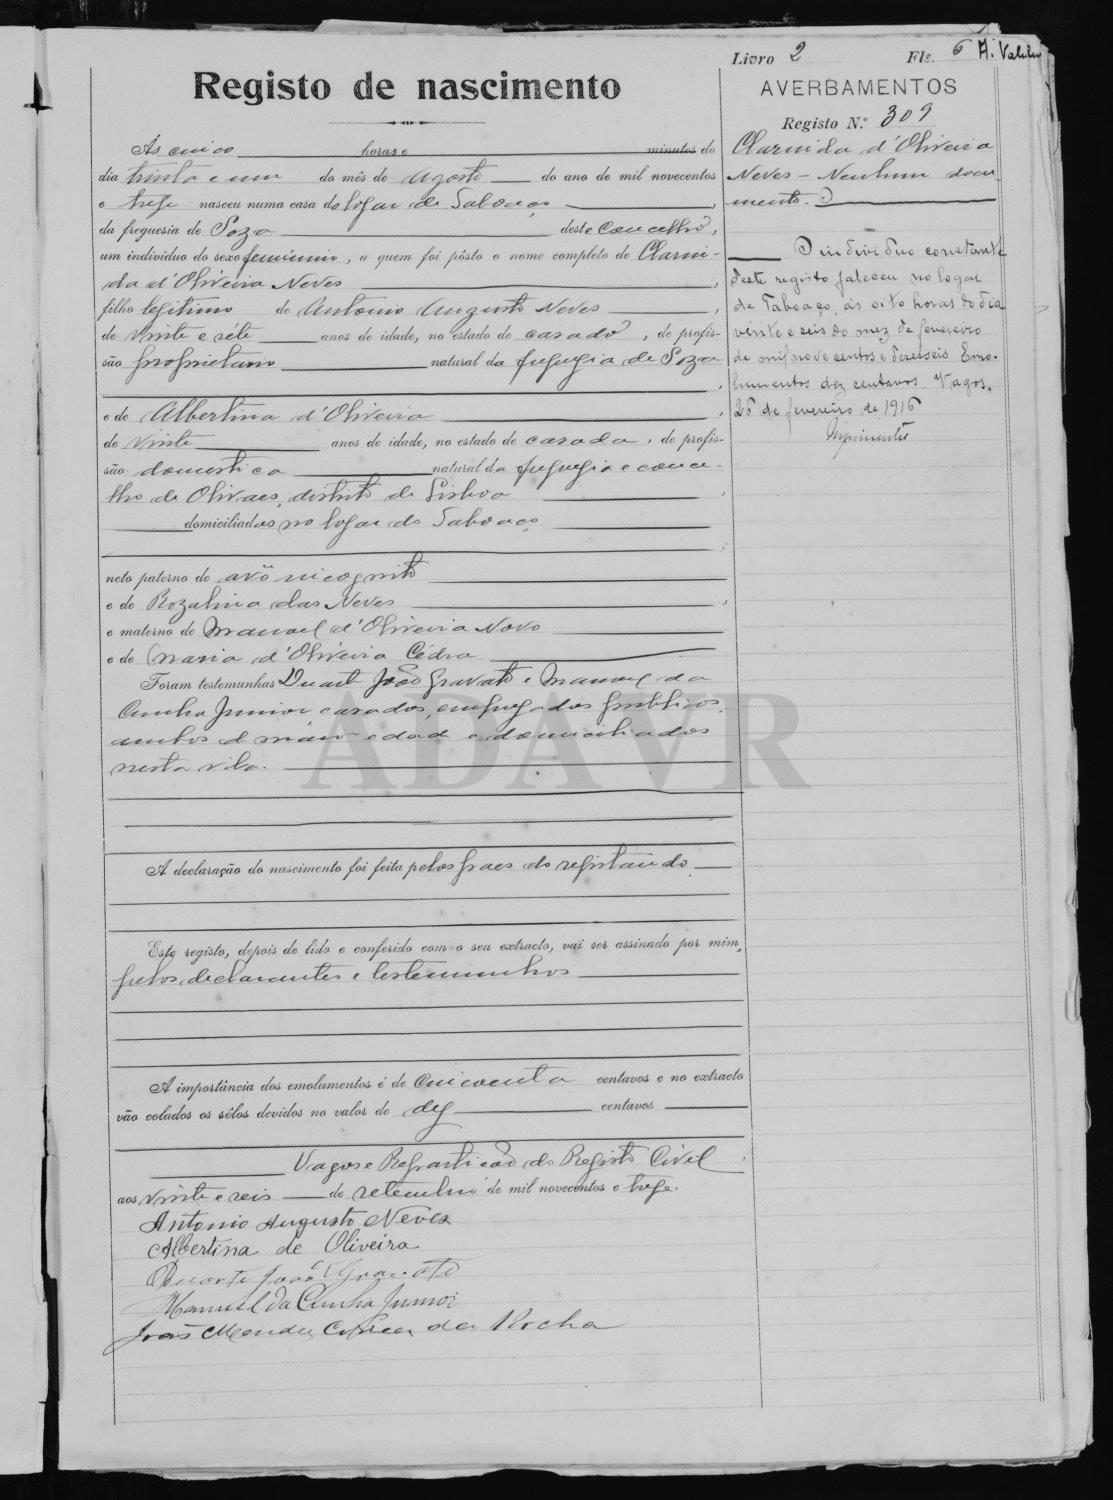 Livro 2 Fls. 6 A. Valilew
Registo de nascimento
AVERBAMENTOS
Registo N.º 309
Ás cinco horas e minutos do
dia trinta e um do mês de Agosto do ano de mil novecentos
e treze nasceu numa casa do logar de Saboaço,
da freguesia de Soza deste concelho,
um individuo do sexo femenino, a quem foi pôsto o nome completo de Clarni-
da d'Oliveira Neves,
filho legitimo de Antonio Augusto Neves,
de vinte e séte anos de idade, no estado de casado, de profis-
são proprietario natural da freguezia de Soza
,
e de Albertina d'Oliveira,
de vinte anos de idade, no estado de casada, de profis-
são domestica natural da freguezia e conce-
lho de Olivaes, distrito de Lisboa,
domiciliados no logar do Saboaço
;
neto paterno de avô incognito
e de Rozalina das Neves,
e materno de Manoel d'Oliveira Novo
e de Maria d'Oliveira Cédra
Foram testemunhas Duarte João Gravato e Manoel da
Cunha Junior, casados, empregados publicos,
ambos de maior edade e domiciliados
nesta vila.
A declaração do nascimento foi feita pelos paes do registando.
Este registo, depois de lido e conferido com o seu extracto, vai ser assinado por mim,
pelos declarantes e testemunhas
A importância dos emolumentos é de cincoenta centavos e no extracto
vão colados os sêlos devidos no valor de dez centavos
Vagos e Repartição do Registo Civil
aos vinte e seis de setembro de mil novecentos e treze.
Antonio Augusto Neves
Albertina de Oliveira
Duarte João Gravato
Manuel da Cunha Junior
João Mendes Correia da Rocha
Clarnida d'Oliveira
Neves - Nenhum docu
mento.
O individuo constante
deste registo faleceu no logar
de Taboaço, ás oito horas do dia
vinte e seis do mez de fevereiro
de mil nove centos e dezeseis. Emo-
lumentos dez centavos. Vagos,
26 de fevereiro de 1916
ADAVR